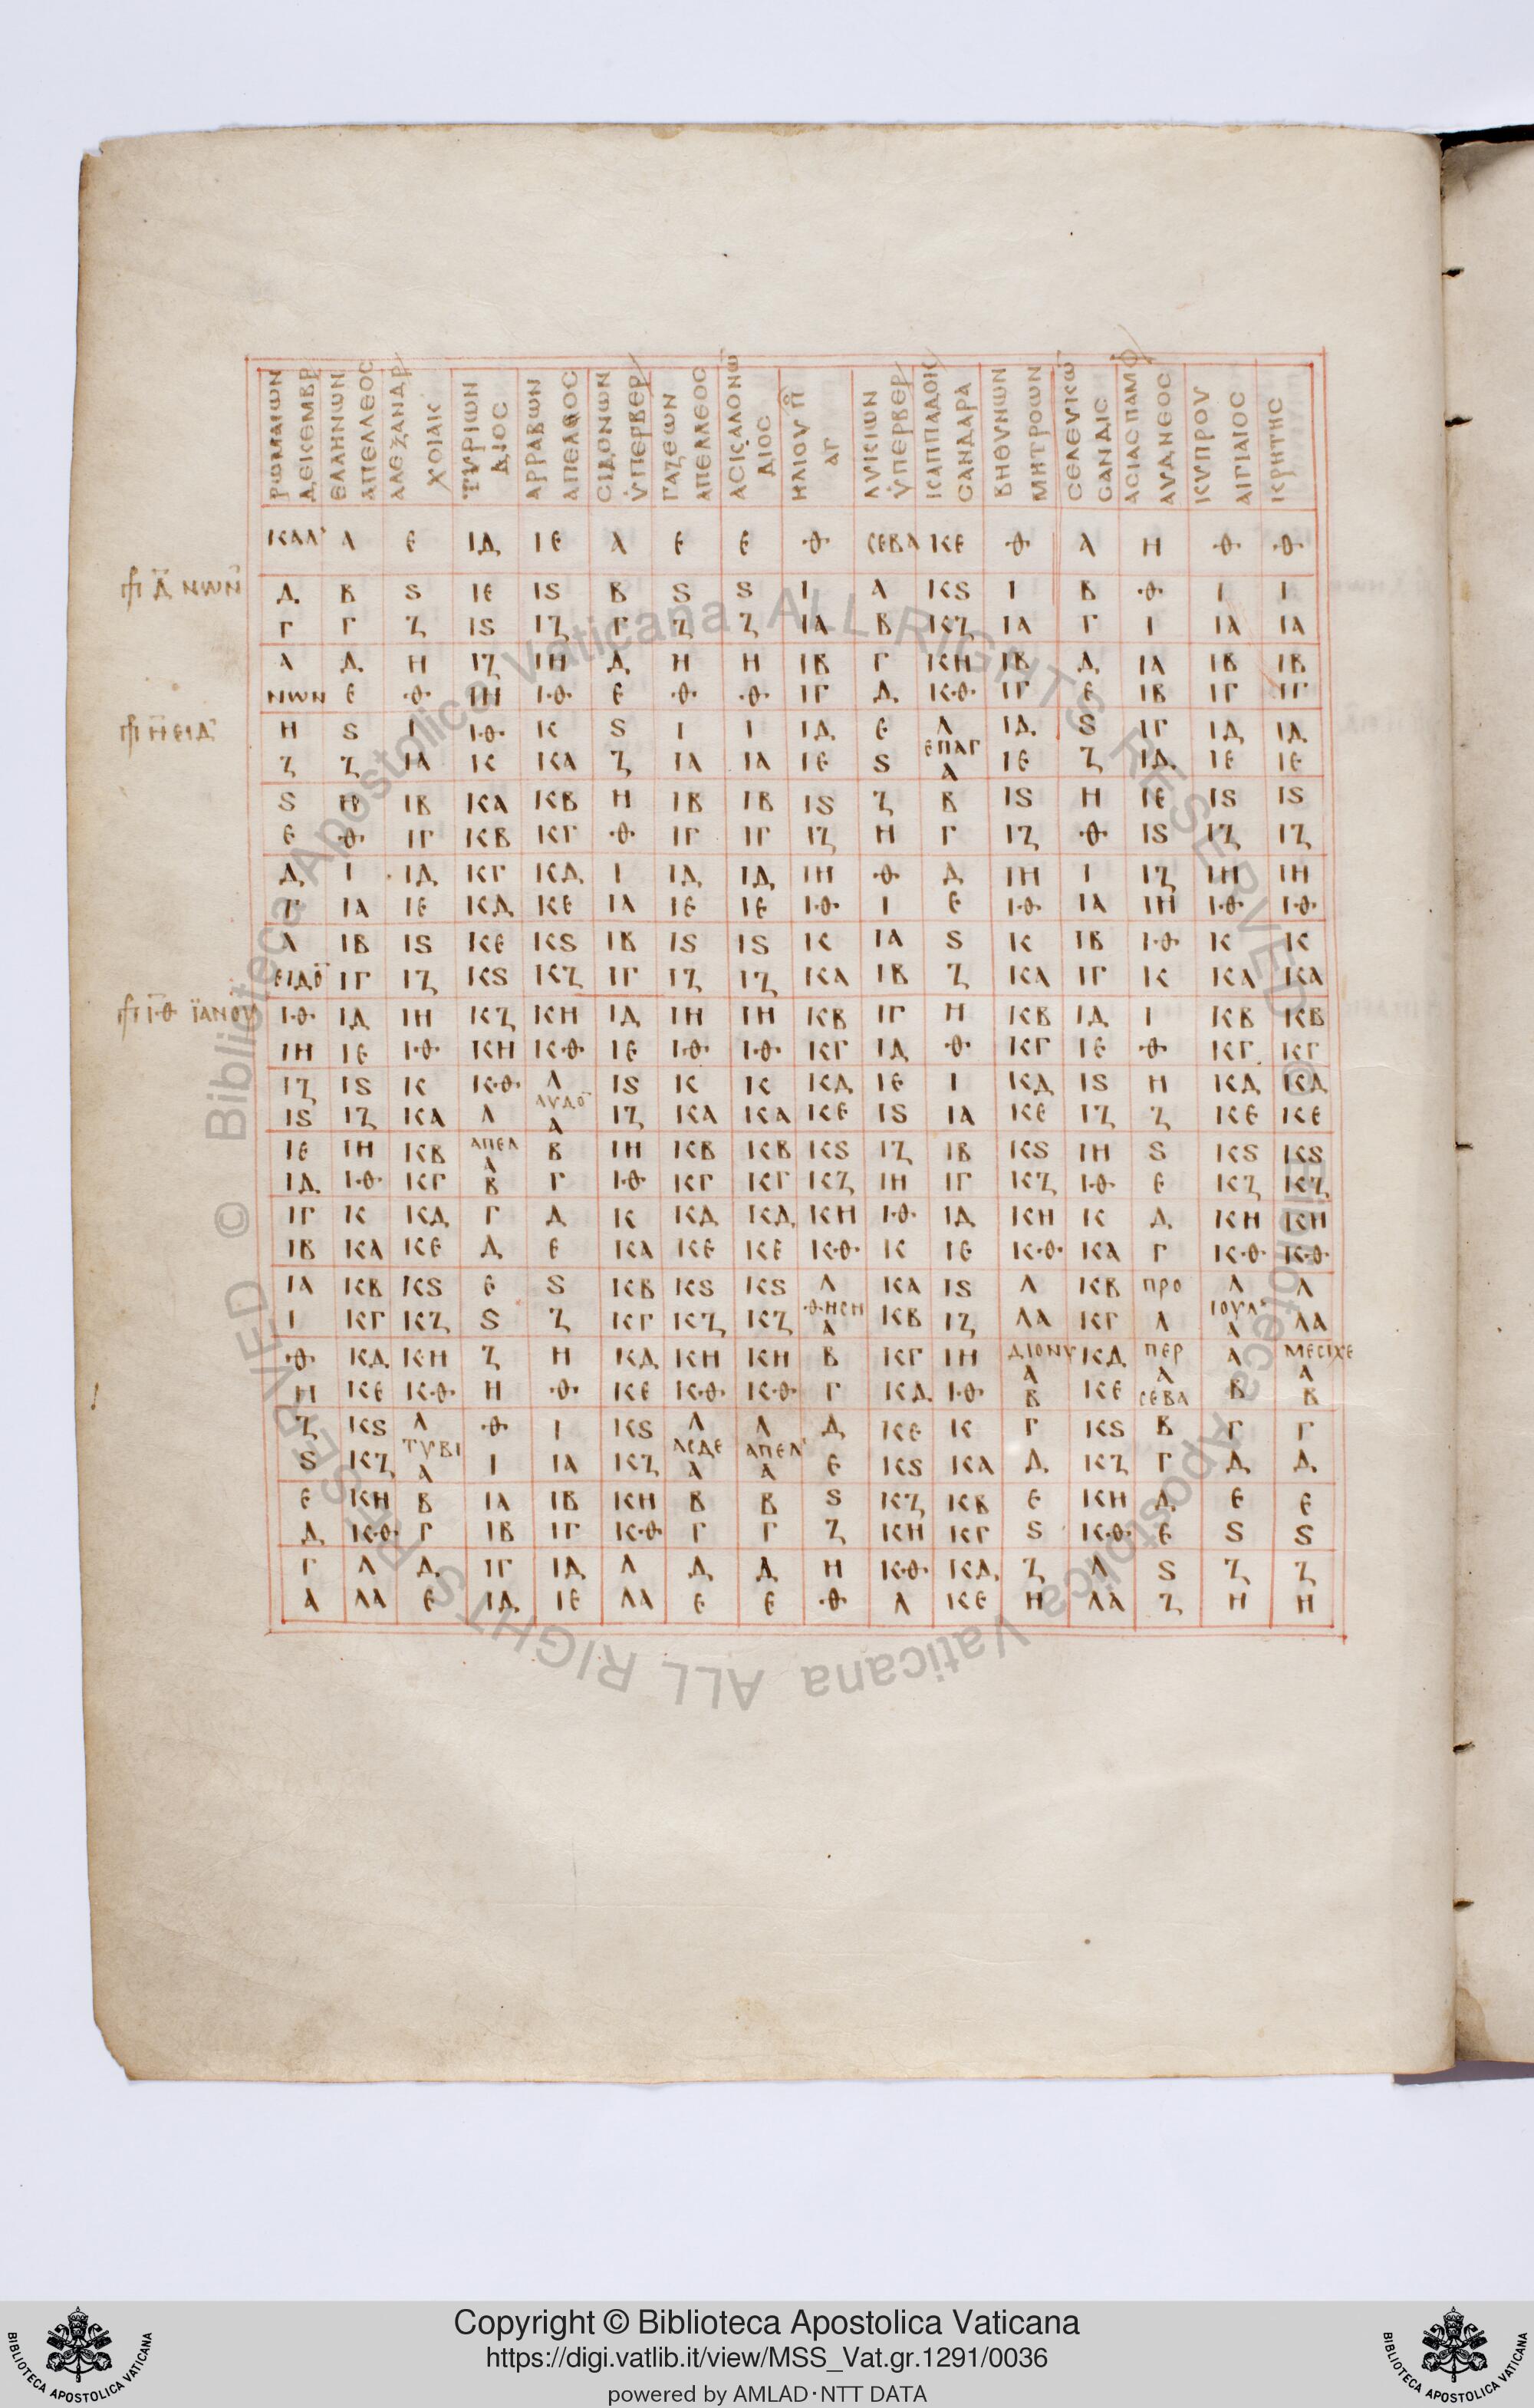 ΡΩΜΑΙΩΝ ΔΕΙΚΕΜΒΡ ΕΛΛΗΝΩΝ ΑΠΕΛΛΕΟC ΑΛΕΞΑΝΔΡ ΧΟΙΑΚ ΤΥΡΙΩΝ ΔΙΟC ΑΡΡΑΒΩΝ CΙΔΟΝΩΝ ΥΠΕΡΒΕΡ ΓΑΖΕΩΝ ΑΠΕΛΛΕΟC ΑCΚΑΛΟΝΩ ΔΙΟC ΗΛΙΟΥΠ ΑΓ ΛΥΚΙΩΝ ΥΠΕΡΒΕΡ ΚΑΠΠΑΔΟΚ CΑΝΔΑΡΑ ΒΗΘΥΝΩΝ ΜΗΤΡΟΩΝ CΕΛΕΥΚΩ CΑΝΔΙC ΑCΙΑCΠΑΜΦ ΑΥΔΝΕΟC ΚΥΠΡΟΥ ΑΠΙΑΙΟC ΚΡΗΤΗC
ΚΑΛ Α Ε ΙΔ ΙΕ Α Ε Ε Θ CΕΒΑ ΚΕ Θ Α Η Θ Θ
Δ ΝΩΝ Δ Β S ΙΕ ΙS Β S S Ι Α ΚS Ι Β Θ Ι Ι
Γ Γ Ζ ΙS ΙΖ Γ Ζ Ζ ΙΑ Β ΚΖ ΙΑ Γ Ι ΙΑ ΙΑ
Α Δ Η ΙΖ ΙΗ Δ Η Η ΙΒ Γ ΚΗ ΙΒ Δ ΙΑ ΙΒ ΙΒ
ΝΩΝ Ε Θ ΙΗ ΙΘ Ε Θ Θ ΙΓ Δ ΚΘ ΙΓ Ε ΙΒ ΙΓ ΙΓ
Η ΕΙΔ Η S Ι ΙΘ Κ S Ι Ι ΙΔ Ε Λ ΙΔ S ΙΓ ΙΔ ΙΔ
Ζ Ζ ΙΑ Κ ΚΑ Ζ ΙΑ ΙΑ ΙΕ S ΕΠΑΓ Α ΙΕ Ζ ΙΔ ΙΕ ΙΕ
S Η ΙΒ ΚΑ ΚΒ Η ΙΒ ΙΒ ΙS Ζ Β ΙS Η ΙΕ ΙS ΙS
Ε Θ ΙΓ ΚΒ ΚΓ Θ ΙΓ ΙΓ ΙΖ Η Γ ΙΖ Θ ΙS ΙΖ ΙΖ
Δ Ι ΙΔ ΚΓ ΚΔ Ι ΙΔ ΙΔ ΙΗ Θ Δ ΙΗ Ι ΙΖ ΙΗ ΙΗ
Γ ΙΑ ΙΕ ΚΔ ΚΕ ΙΑ ΙΕ ΙΕ ΙΘ Ι Ε ΙΘ ΙΑ ΙΗ ΙΘ ΙΘ
Α ΙΒ ΙS ΚΕ ΚS ΙΒ ΙS ΙS Κ ΙΑ S Κ ΙΒ ΙΘ Κ Κ
ΕΙΔΟ ΙΓ ΙΖ ΚS ΚΖ ΙΓ ΙΖ ΙΖ ΚΑ ΙΒ Ζ ΚΑ ΙΓ Κ ΚΑ ΚΑ
ΙΘ ΪΑΝΟΥ ΙΘ ΙΔ ΙΗ ΚΖ ΚΗ ΙΔ ΙΗ ΙΗ ΚΒ ΙΓ Η ΚΒ ΙΔ Ι ΚΒ ΚΒ
ΙΗ ΙΕ ΙΘ ΚΗ ΚΘ ΙΕ ΙΘ ΙΘ ΚΓ ΙΔ Θ ΚΓ ΙΕ Θ ΚΓ ΚΓ
ΙΖ ΙS Κ ΚΘ Λ ΙS Κ Κ ΚΔ ΙΕ Ι ΚΔ ΙS Η ΚΔ ΚΔ
ΙS ΙΖ ΚΑ Λ ΑΥΔΟ Α ΙΖ ΚΑ ΚΑ ΚΕ ΙS ΙΑ ΚΕ ΙΖ Ζ ΚΕ ΚΕ
ΙΕ ΙΗ ΚΒ ΑΠΕΛ Α Β ΙΗ ΚΒ ΚΒ ΚS ΙΖ ΙΒ ΚS ΙΗ S ΚS ΚS
ΙΔ ΙΘ ΚΓ Β Γ ΙΘ ΚΓ ΚΓ ΚΖ ΙΗ ΙΓ ΚΖ ΙΘ Ε ΚΖ ΚΖ
ΙΓ Κ ΚΔ Γ Δ Κ ΚΔ ΚΔ ΚΗ ΙΘ ΙΔ ΚΗ Κ Δ ΚΗ ΚΗ
ΙΒ ΚΑ ΚΕ Δ Ε ΚΑ ΚΕ ΚΕ ΚΘ Κ ΙΕ ΚΘ ΚΑ Γ ΚΘ ΚΘ
ΙΑ ΚΒ ΚS Ε S ΚΒ ΚS ΚS Λ ΚΑ ΙS Λ ΚΒ ΠΡΟ Λ Λ
Ι ΚΓ ΚΖ S Ζ ΚΓ ΚΖ ΚΖ ΘΗCΗ Α ΚΒ ΙΖ ΛΑ ΚΓ Α ΙΟΥΛ Α ΛΑ
Θ ΚΔ ΚΗ Ζ Η ΚΔ ΚΗ ΚΗ Β ΚΓ ΙΗ ΔΙΟΝΥ Α ΚΔ ΠΕΡ Α Α ΜΕCΙΧΕ Α
Η ΚΕ ΚΘ Η Θ ΚΕ ΚΘ ΚΘ Γ ΚΔ ΙΘ Β ΚΕ CΕΒΑ Β Β
Ζ ΚS Λ Θ Ι ΚS Λ Λ Δ ΚΕ Κ Γ ΚS Β Γ Γ
S ΚΖ ΤΥΒΙ Α Ι ΙΑ ΚΖ Α ΑΠΕΛ Α Ε ΚS ΚΑ Δ ΚΖ Γ Δ Δ
Ε ΚΗ Β ΙΑ ΙΒ ΚΗ Β Β S ΚΖ ΚΒ Ε ΚΗ Δ Ε Ε
Δ ΚΘ Γ ΙΒ ΙΓ ΚΘ Γ Γ Ζ ΚΗ ΚΓ S ΚΘ Ε S S
Γ Λ Δ ΙΓ ΙΔ Λ Δ Δ Η ΚΘ ΚΔ Ζ Λ S Ζ Ζ
Α ΛΑ Ε ΙΔ ΙΕ ΛΑ Ε Ε Θ Λ ΚΕ Η ΛΑ Ζ Η Η
© Biblioteca Apostolica Vaticana ALL RIGHTS RESERVED
© Biblioteca Apostolica Vaticana ALL RIGHTS RESERVED
Copyright © Biblioteca Apostolica Vaticana
https://digi.vatlib.it/view/MSS_Vat.gr.1291/0036
powered by AMLAD·NTT DATA
BIBLIOTECA APOSTOLICA VATICANA
BIBLIOTECA APOSTOLICA VATICANA